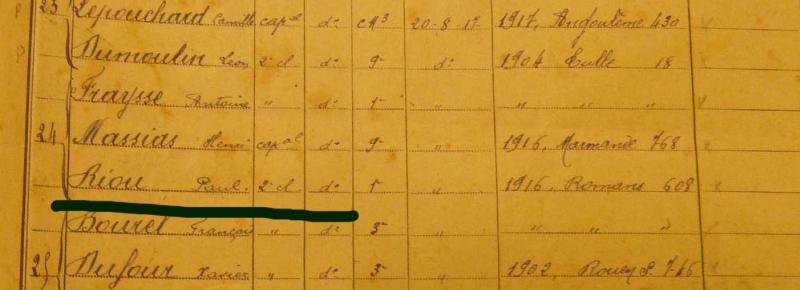 23 Lepouchard Camille capal do CM3 20-8-17 1917, Angoulême 430
Dumoulin Léon 2e cl do 9e do 1904 Tulle 18
Fraysse Antoine " do 1e " " " "
24 Massias Henri capal do 9e " 1916, Marmande 768
Riou Paul. 2e cl do 1 " 1916, Romans 608
Bourel François " do 3e " " " "
25 Dufour Xavier " do 3e " 1902, Rouen S. 746